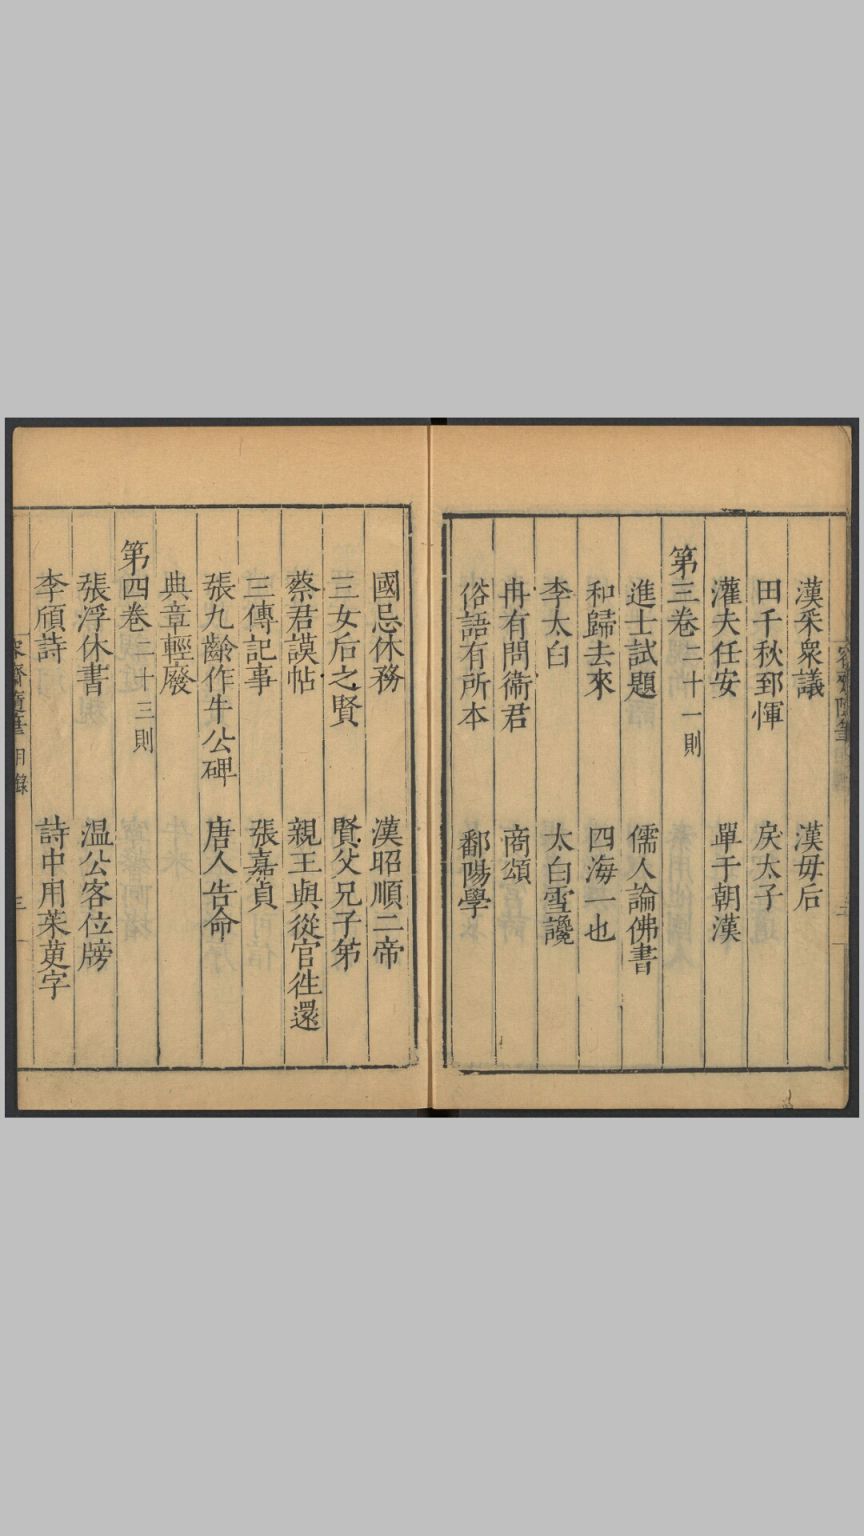 漢采衆議　漢母后
田千秋郅惲　戾太子
灌夫任安　單于朝漢
第三卷二十一則
進士試題　儒人論佛書
和歸去來　四海一也
李太白　太白雪讒
冉有問衛君　商頌
俗語有所本　鄱陽學
國忌休務　漢昭順二帝
三女后之賢　賢父兄子弟
蔡君謨帖　親王與從官往還
三傳記事　張嘉貞
張九齡作牛公碑　唐人告命
典章輕廢
第四卷二十三則
張浮休書　温公客位牓
李頎詩　詩中用茱萸字
容齋隨筆　目錄　三